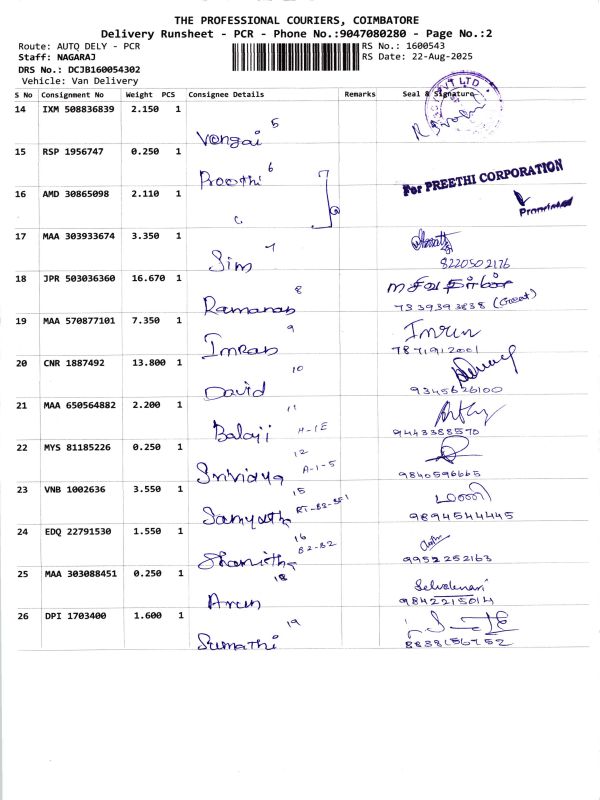 THE PROFESSIONAL COURIERS, COIMBATORE
Delivery Runsheet - PCR - Phone No.:9047080280 - Page No.:2
Route: AUTO DELY - PCR
RS No.: 1600543
Staff: NAGARAJ
RS Date: 22-Aug-2025
DRS No.: DCJB160054302
Vehicle: Van Delivery
S No Consignment No Weight PCS Consignee Details Remarks Seal & Signature
14 IXM 508836839 2.150 1
5
15 RSP 1956747 0.250 1
Preethi 6
For PREETHI CORPORATION
16 AMD 30865098 2.110 1
17 MAA 303933674 3.350 1
Sim 7
8220502176
18 JPR 503036360 16.670 1
8
7539393838
19 MAA 570877101 7.350 1
Imran 9
Imran
7871912001
20 CNR 1887492 13.800 1
David 10
9345626100
21 MAA 650564882 2.200 1
Balaji 11 H-1E
9443388570
22 MYS 81185226 0.250 1
Srividya 12 A-1-5
9840596665
23 VNB 1002636 3.550 1
15
மணி
9894544445
24 EDQ 22791530 1.550 1
16 B2-B2
9952252163
25 MAA 303088451 0.250 1
Arun 18
9842215014
26 DPI 1703400 1.600 1
Sumathi 19
8838156752